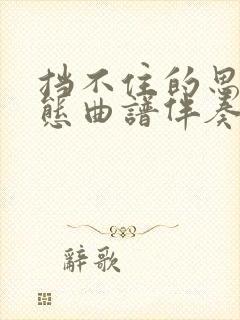 挡不住的思
态曲譜伴奏
辭歌